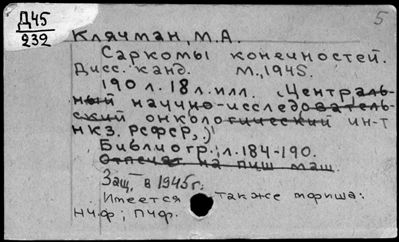 Д45
232
5
Клячман, М.А.
Саркомы конечностей.
Дисс. канд. М., 1945.
190 л. 18 л. илл. (Централь-
ный научно-исследователь-
ский онкологический ин-т
НКЗ. РСФСР,.)
Библиогр.; л. 184-190.
Отпечат на пиш маш.
Защ. в 1945 г.
Имеется также тфиша:
НЧФ; ПЧФ.